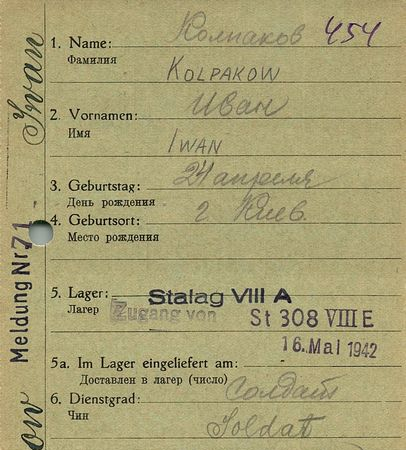 Колпаков 454
1. Name:
Фамилия
KOLPAKOW
Иван
2. Vornamen:
Имя
IWAN
24 апреля
3. Geburtstag:
День рождения
г. Киев.
4. Geburtsort:
Место рождения
5. Lager: Stalag VIII A
Лагер
Zugang von St 308 VIII E
16. Mai 1942
5a. Im Lager eingeliefert am:
Доставлен в лагер (число)
Солдат
6. Dienstgrad:
Чин
Soldat
Ivan
Meldung Nr. 71
ow